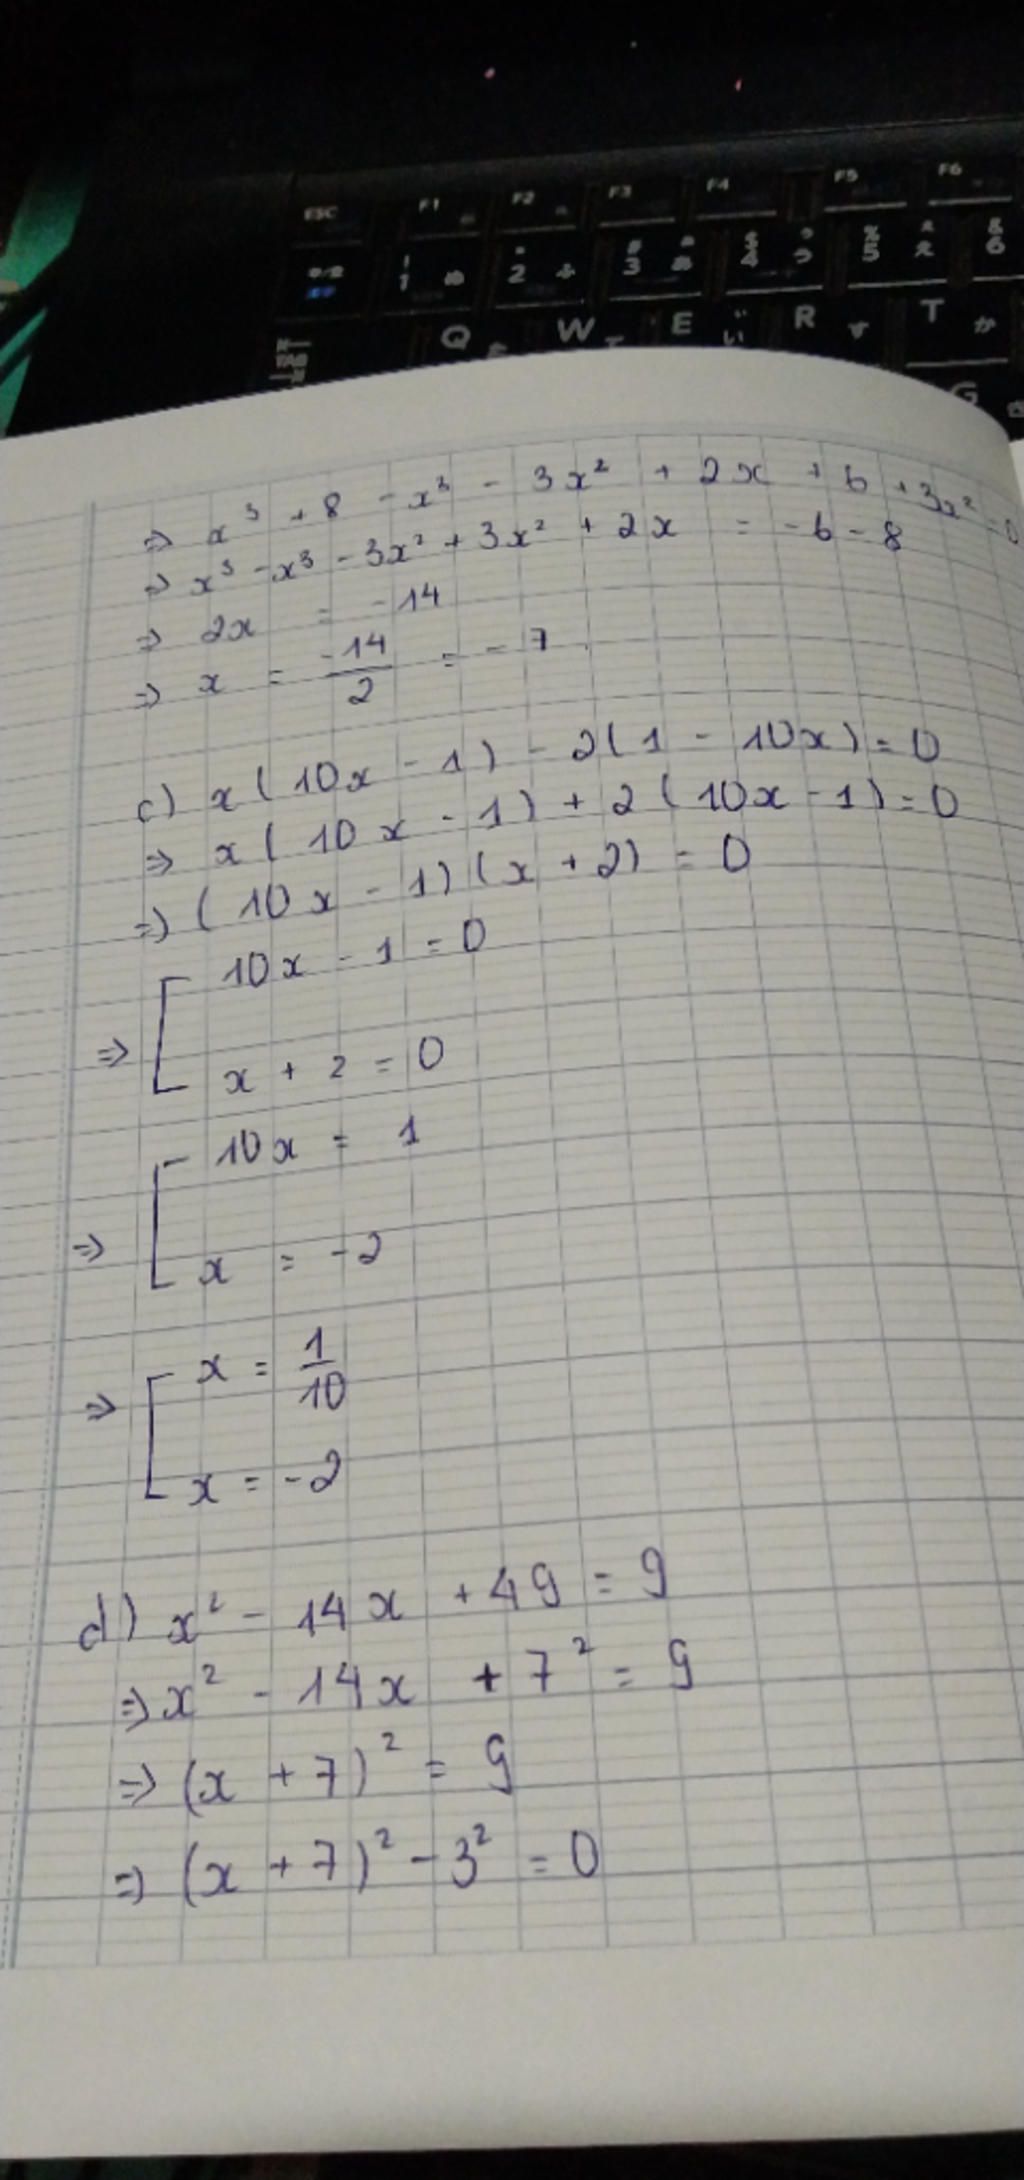 ESC F1 F2 F3 F4 F5 F6
1 ぬ 2 ふ # 3 あ $ 4 う % 5 え & 6
Q た W て E い R す T か
G
⇒ x³ + 8 - x³ - 3x² + 2x + 6 + 3x² = 0
⇒ x³ - x³ - 3x² + 3x² + 2x = -6 - 8
⇒ 2x = -14
⇒ x = -14/2 = -7
c) x(10x - 1) - 2(1 - 10x) = 0
⇒ x(10x - 1) + 2(10x - 1) = 0
⇒ (10x - 1)(x + 2) = 0
⇒ [ 10x - 1 = 0
x + 2 = 0
⇒ [ 10x = 1
x = -2
⇒ [ x = 1/10
x = -2
d) x² - 14x + 49 = 9
⇒ x² - 14x + 7² = 9
⇒ (x + 7)² = 9
⇒ (x + 7)² - 3² = 0